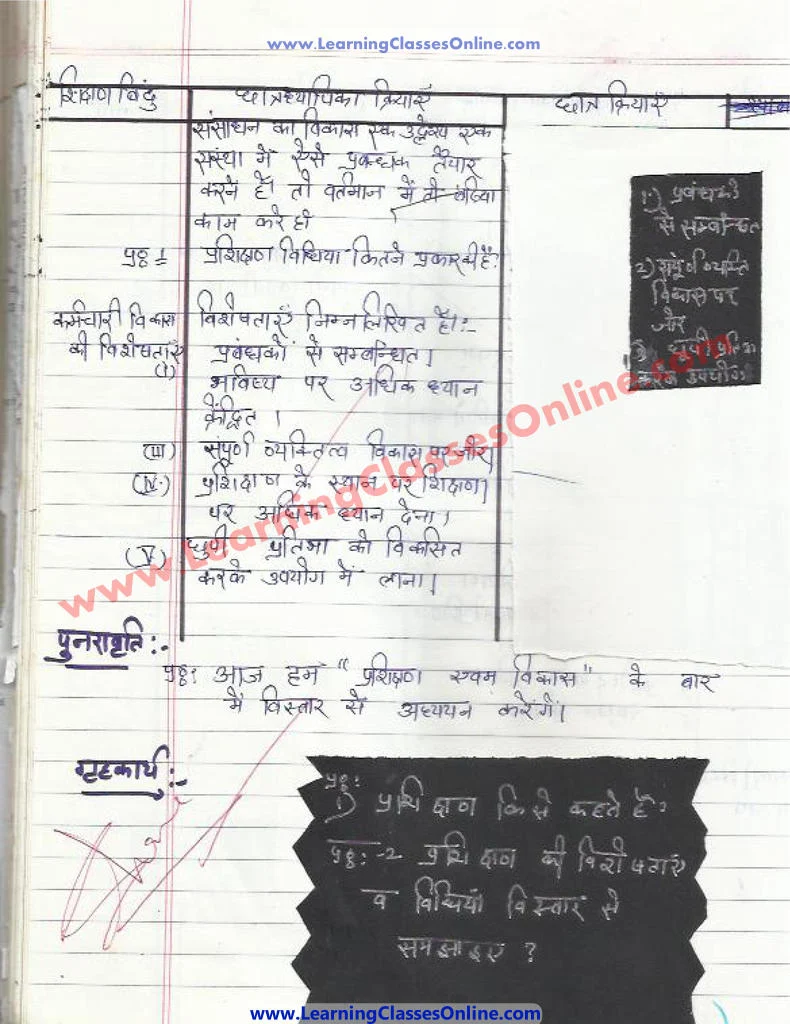 www.LearningClassesOnline.com
शिक्षण बिंदु छात्राध्यापिका क्रियाएँ छात्र क्रियाएँ
संसाधन का विकास एक उद्देश्य एक
संस्था में ऐसे प्रबन्धक तैयार
करने हैं। तो वर्तमान में तो बढ़िया
काम करे ही
प्रश्न 1 प्रशिक्षण विधिया कितने प्रकार की हैं?
कर्मचारी विकास विशेषताएँ निम्नलिखित हैं।:-
की विशेषताएं प्रबंधकों से सम्बन्धित।
(I) भविष्य पर अधिक ध्यान
केंद्रित।
(III) संपूर्ण व्यक्तित्व विकास पर जोर
(IV) प्रशिक्षण के स्थान पर शिक्षण
पर अधिक ध्यान देना।
(V) छुपी प्रतिभा को विकसित
करके उपयोग में लाना।
1) प्रबंधको
से सम्बन्धित
2) संपूर्ण व्यक्ति
विकास पर
जोर
3) छुपी प्रतिभा
उपयोग
www.LearningClassesOnline.com
पुनरावृति:-
प्रश्न: आज हम "प्रशिक्षण एवम विकास" के बार
में विस्तार से अध्ययन करेंगें।
गृहकार्य:-
प्रश्न:
1) प्रशिक्षण किसे कहते हैं?
प्रश्न:-2 प्रशिक्षण की विशेषताएं
व विधियाँ विस्तार से
समझाइए ?
www.LearningClassesOnline.com